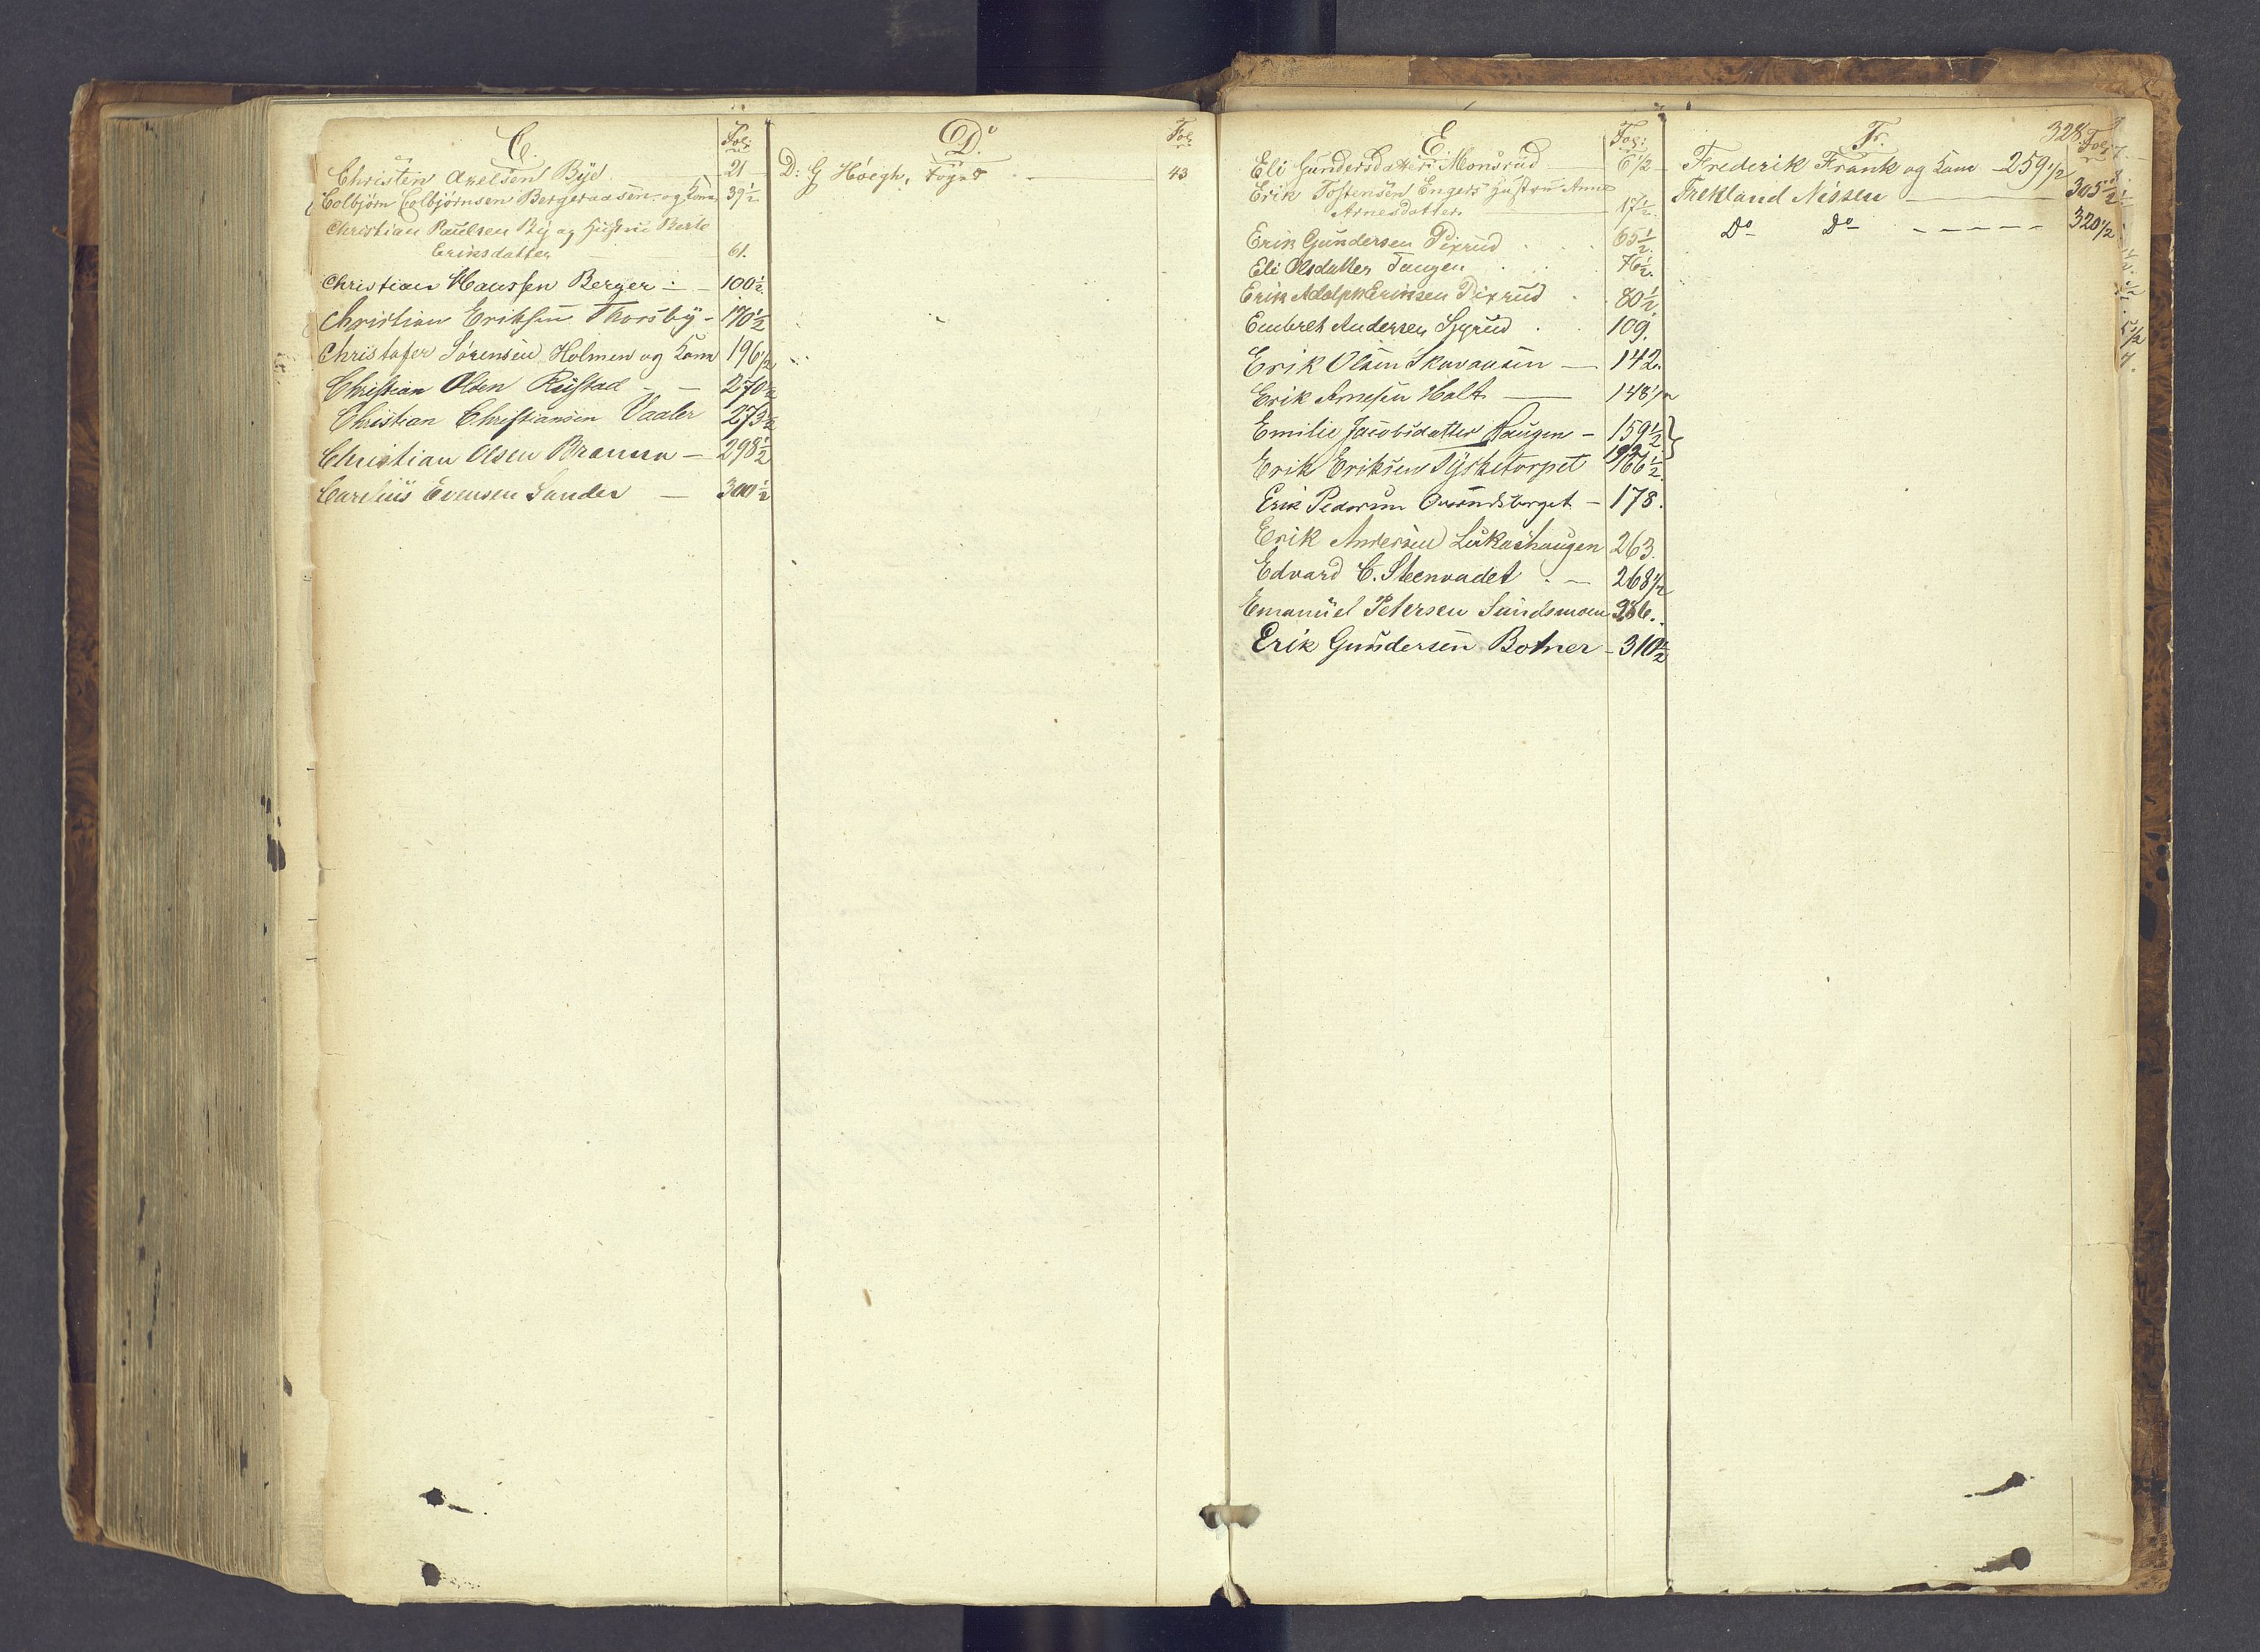 C. Fol:
Christen Axelsen Byе 21
Colbjørn Colbjørnsen Bergeraasen og Kone 39½
Christian Paulsen By og Hustru Berte
Eriksdatter 61.
Christian Hansen Berger 100½
Christian Eriksen Thorsby - 170½
Christofer Sørensen Holmen og Kone 196½
Christian Olsen Rustad - - 270½
Christian Christiansen Vaaler 273½
Christian Olsen Branna - 298½
Carelius Evensen Sander - 300½
D. Fol:
D: G Høegh, Foged - 43
E. Fol:
Eli Gundersdatter Monsrud 6½
Erik Tostensen Engers Hustru Anne
Arnesdatter 17½
Erik Gundersen Pixrud 65½
Eli Olsdatter Tangen 76½
Erik Adolph Eriksen Pixrud 80½
Embret Andersen Sygrud 109.
Erik Olsen Skavaasen - 142.
Erik Arnesen Holt - 148½
Emilie Jacobsdatter Haugen - 159½
192
Erik Eriksen Tysketorpet 166½
Erik Pedersen Overudsberget - 178.
Erik Andersen Lukashaugen 263.
Edvard C. Steenvadet - 268½
Emanuel Petersen Sundsmoen 286.
Erik Gundersen Botner - 310½
328.
F. Fol:
Frederik Frank og Kone - 259½
Nissen 305½
Do Do - - - - - 320½